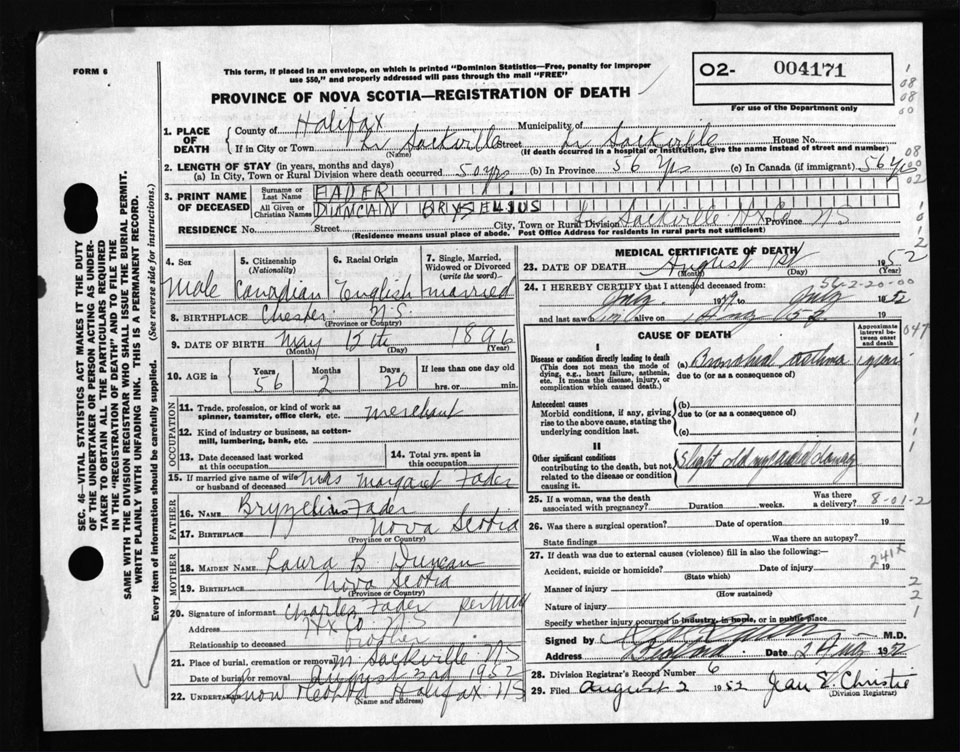 FORM 6
This form, if placed in an envelope, on which is printed "Dominion Statistics—Free, penalty for improper
use $50," and properly addressed will pass through the mail "FREE"
O2- 004171
For use of the Department only
PROVINCE OF NOVA SCOTIA—REGISTRATION OF DEATH
1. PLACE OF DEATH { County of Halifax Municipality of
If in City or Town Lr Sackville Street Lr Sackville House No.
(Name) (If death occurred in a hospital or institution, give the name instead of street and number)
2. LENGTH OF STAY (in years, months and days)
(a) In City, Town or Rural Division where death occurred 50 yrs (b) In Province 56 Yrs (c) In Canada (if immigrant) 56 Yrs
3. PRINT NAME OF DECEASED { Surname or Last Name FADER
All Given or Christian Names DUNCAN BRYSELIUS
RESIDENCE No. Street City, Town or Rural Division L. Sackville N.S.
(Residence means usual place of abode. Post Office Address for residents in rural parts not sufficient)
4. Sex Male
5. Citizenship (Nationality) Canadian
6. Racial Origin English
7. Single, Married, Widowed or Divorced (write the word) married
8. BIRTHPLACE Chester N.S.
(Province or Country)
9. DATE OF BIRTH May 12th 1896
(Month) (Day) (Year)
10. AGE in Years 56 Months 2 Days 20 If less than one day old hrs. or min.
OCCUPATION
11. Trade, profession, or kind of work as spinner, teamster, office clerk, etc. merchant
12. Kind of industry or business, as cotton-mill, lumbering, bank, etc.
13. Date deceased last worked at this occupation
14. Total yrs. spent in this occupation
15. If married give name of wife or husband of deceased Mrs Margaret Fader
FATHER
16. NAME Bryzelius Fader
17. BIRTHPLACE Nova Scotia
(Province or Country)
MOTHER
18. MAIDEN NAME Laura B Duncan
19. BIRTHPLACE Nova Scotia
(Province or Country)
20. Signature of informant Charles Fader
Address Hx Co NS
Relationship to deceased brother
21. Place of burial, cremation or removal M. Sackville NS
Date of burial or removal August 3rd 1952
22. UNDERTAKER Snow Halifax NS
(Name and address)
MEDICAL CERTIFICATE OF DEATH
23. DATE OF DEATH August 1st 1952
(Month) (Day) (Year)
24. I HEREBY CERTIFY that I attended deceased from:
56-2-20-00
July 19 to July 1952
and last saw h im alive on Aug 1 52
CAUSE OF DEATH
Approximate interval between onset and death
047
I
Disease or condition directly leading to death (a) Bronchial asthma years
(This does not mean the mode of dying, e.g., heart failure, asthenia, etc. It means the disease, injury, or complication which caused death.)
due to (or as a consequence of)
Antecedent causes (b)
Morbid conditions, if any, giving rise to the above cause, stating the underlying condition last.
due to (or as a consequence of)
(c)
II
Other significant conditions
contributing to the death, but not related to the disease or condition causing it
Slight old myocardial
25. If a woman, was the death associated with pregnancy? Duration weeks. Was there a delivery? 8-01-2
26. Was there a surgical operation? Date of operation 19
State findings Was there an autopsy?
27. If death was due to external causes (violence) fill in also the following:—
241X
Accident, suicide or homicide? Date of injury 19
(State which)
Manner of injury
(How sustained)
Nature of injury
Specify whether injury occurred in industry, in home, or in public place
Signed by M.D.
Address Bedford Date 2 Aug 1952
28. Division Registrar's Record Number 6
29. Filed August 2 1952 Jean E. Christie
(Division Registrar)
SEC. 46—VITAL STATISTICS ACT MAKES IT THE DUTY
OF THE UNDERTAKER OR PERSON ACTING AS UNDER-
TAKER TO OBTAIN ALL THE PARTICULARS REQUIRED
IN THE "REGISTRATION OF DEATH" AND TO FILE THE
SAME WITH THE DIVISION REGISTRAR WHO SHALL ISSUE THE BURIAL PERMIT.
WRITE PLAINLY WITH UNFADING INK. THIS IS A PERMANENT RECORD.
Every item of information should be carefully supplied. (See reverse side for instructions.)